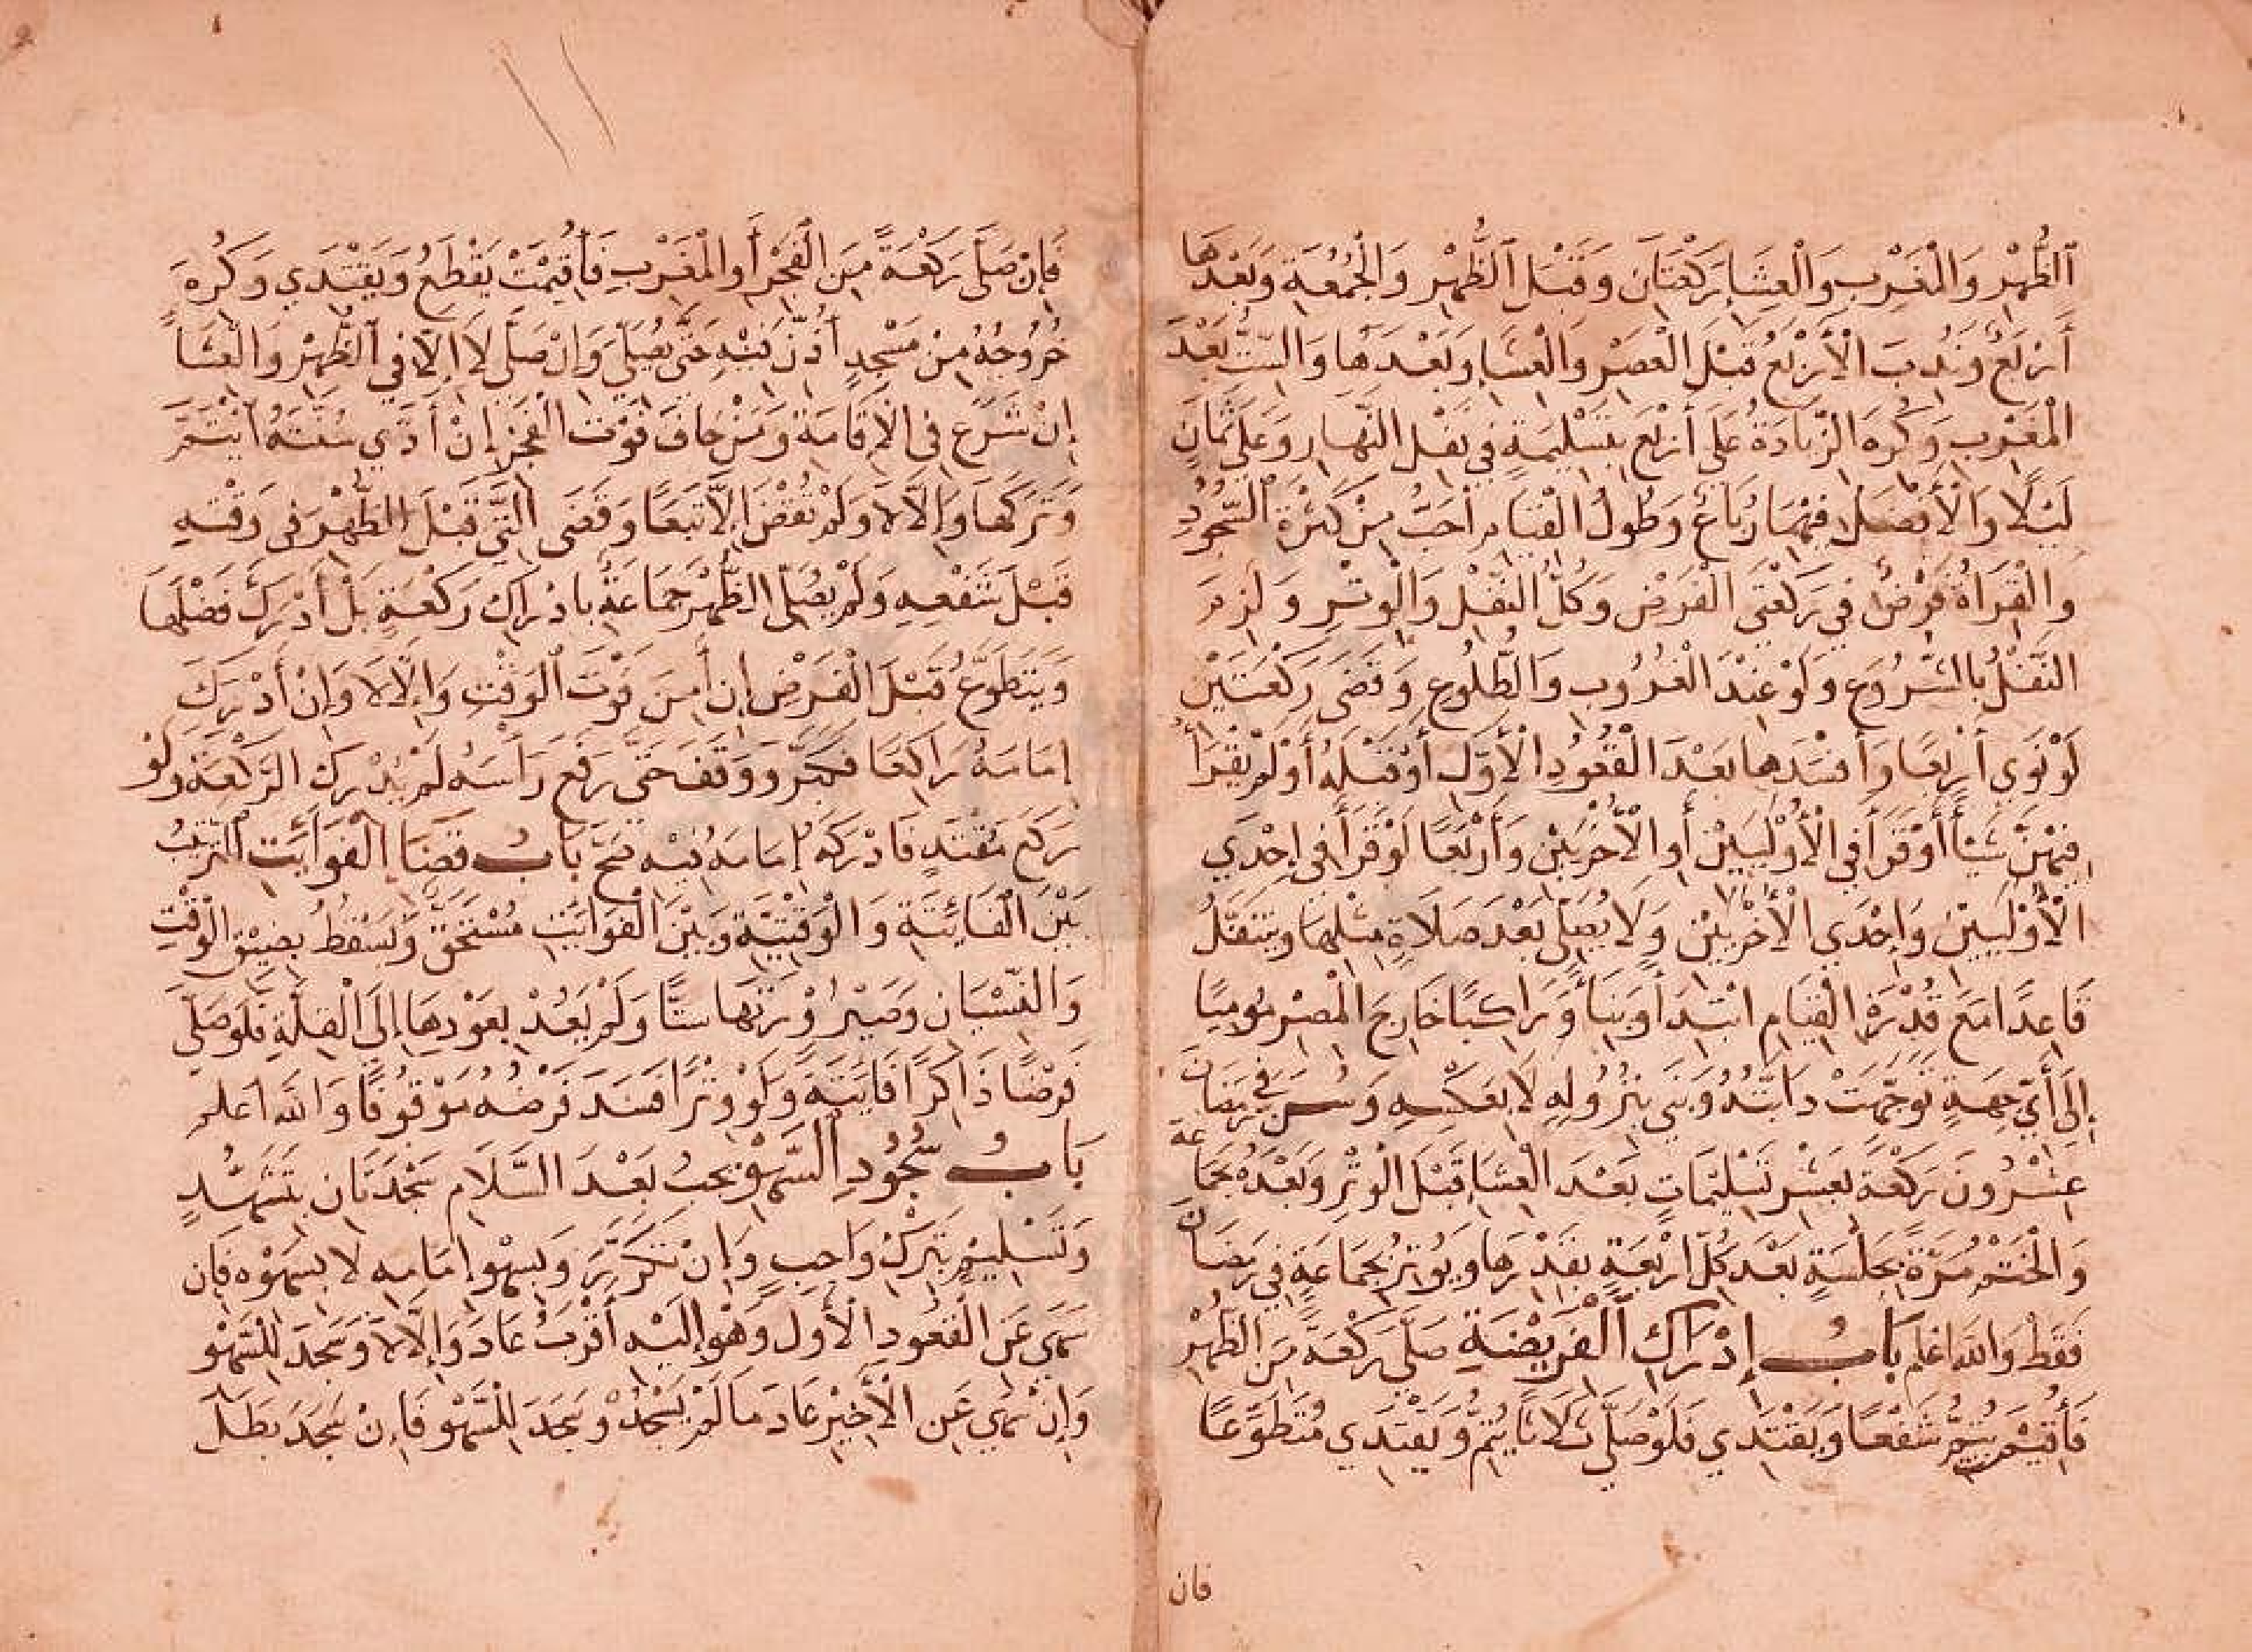 ٱلظُّهْرِ وَالْمَغْرِبِ وَالْعِشَاءِ رَكْعَتَانِ وَقَبْلَ ٱلظُّهْرِ وَالْجُمُعَةِ وَبَعْدَهَا
أَرْبَعٌ وَنُدِبَ الْأَرْبَعُ قَبْلَ الْعَصْرِ وَالْعِشَاءِ وَبَعْدَهَا وَالسِّتُّ بَعْدَ
الْمَغْرِبِ وَكُرِهَ الزِّيَادَةُ عَلَى أَرْبَعٍ بِتَسْلِيمَةٍ فِي نَفْلِ النَّهَارِ وَعَلَى ثَمَانٍ
لَيْلًا وَالْأَفْضَلُ فِيهِمَا رُبَاعُ وَطُولُ الْقِيَامِ أَحَبُّ مِنْ كَثْرَةِ السُّجُودِ
وَالْقِرَاةُ فَرْضٌ فِي رَكْعَتَيِ الْفَرْضِ وَكُلِّ النَّفْلِ وَالْوِتْرِ وَلَزِمَ
النَّفْلُ بِالشُّرُوعِ وَلَوْ عِنْدَ الْغُرُوبِ وَالطُّلُوعِ وَقَضَى رَكْعَتَيْنِ
لَوْ نَوَى أَرْبَعًا وَأَفْسَدَهَا بَعْدَ الْقُعُودِ الْأَوَّلِ أَوْ قَبْلَهُ أَوْ لَمْ يَقْرَأْ
فِيهِنَّ شَيْأً أَوْ قَرَأَ فِي الْأُوْلَيَيْنِ أَوِ الْأُخْرَيَيْنِ وَأَرْبَعًا لَوْ قَرَأَ فِي إِحْدَى
الْأُوْلَيَيْنِ وَإِحْدَى الْأُخْرَيَيْنِ وَلَا يُصَلَّى بَعْدَ صَلَاةٍ مِثْلِهَا وَيَتَنَفَّلُ
قَاعِدًا مَعَ قُدْرَةِ الْقِيَامِ ابْتِدَأً وَبِنَأً وَرَاكِبًا خَارِجَ الْمِصْرِ مُومِيًا
إِلَى أَيِّ جِهَةٍ تَوَجَّهَتْ دَابَّتُهُ وَبَنَى بِنُزُولِهِ لَا بِعَكْسِهِ وَسُنَّ فِي رَمَضَانَ
عِشْرُونَ رَكْعَةً بِعَشْرِ تَسْلِيمَاتٍ بَعْدَ الْعِشَاءِ قَبْلَ الْوِتْرِ وَبَعْدَهُ بِجَمَاعَةٍ
وَالْخَتْمُ مَرَّةً بِجَلْسَةٍ بَعْدَ كُلِّ أَرْبَعَةٍ بِقَدْرِهَا وَيُوتِرُ بِجَمَاعَةٍ فِي رَمَضَانَ
فَقَطْ وَاللَّهُ اعْلَم بَابُ إِدْرَاكِ الْفَرِيضَةِ صَلَّى رَكْعَةً مِنَ الظُّهْرِ
فَأُقِيمَ يُتِمُّ شَفْعًا وَيَقْتَدِي فَلَوْ صَلَّى ثَلَاثًا يُتِمُّ وَيَقْتَدِي مُتَطَوِّعًا
فان
فَإِنْ صَلَّى رَكْعَةً مِنَ الْفَجْرِ أَوِ الْمَغْرِبِ فَأُقِيمَتْ يَقْطَعُ وَيَقْتَدِي وَكُرِهَ
خُرُوجُهُ مِنْ مَسْجِدٍ أُذِّنَ فِيْهِ حَتَّى يُصَلِّيَ وَإِنْ صَلَّى لَا إِلَّا فِي الظُّهْرِ وَالْعِشَاءِ
إِنْ شَرَعَ فِي الْإِقَامَةِ وَمَنْ خَافَ فَوْتَ الْفَجْرِ إِنْ أَدَّى سُنَّتَهُ ائْتَمَّ
وَتَرَكَهَا وَإِلَّا لَا وَلَمْ تُقْضَ إِلَّا تَبَعًا وَقَضَى الَّتِي قَبْلَ الظُّهْرِ فِي وَقْتِهِ
قَبْلَ شَفْعِهِ وَلَمْ يُصَلِّى الظُّهْرَ جَمَاعَةً بِادْرَاكِ رَكْعَةٍ بَلْ أَدْرَكَ فَضْلَهَا
وَيَتَطَوَّعُ قَبْلَ الْفَرْضِ إِنْ أَمِنَ فَوْتَ الْوَقْتِ وَإِلَّا لَا وَإِنْ أَدْرَكَ
إِمَامَهُ رَاكِعًا فَكَبَّرَ وَوَقَفَ حَتَّى رَفَعَ رَأْسَهُ لَمْ يُدْرِكِ الرَّكْعَةَ وَلَوْ
رَكَعَ مُقْتَدٍ فَادْرَكَهُ إِمَامَهُ فِيْهِ صَحَّ بَابُ قَضَاءِ الْفَوَائِتِ التَّرْتِيبُ
بَيْنَ الْفَائِتَةِ وَالْوَقْتِيَّةِ وَبَيْنَ الْفَوَائِتِ مُسْتَحَقٌّ وَيَسْقُطُ بِضِيْقِ الْوَقْتِ
وَالنِّسْيَانِ وَصَيْرُوْرَتِهَا سِتًّا وَلَمْ يَعُدْ بِعَوْدِهَا إِلَى الْقِلَّةِ فَلَوْ صَلَّى
فَرْضًا ذَاكِرًا فَائِتَةً وَلَوْ وِتْرًا فَسَدَ فَرْضُهُ مَوْقُوفًا وَاللَّه اعلم
بَابُ سُجُودِ السَّهْوِ يجبُ بَعْدَ السَّلَامِ سَجْدَتَانِ بِتَشَهُّدٍ
وَتَسْلِيمٍ بِتَرْكِ وَاجِبٍ وَإِنْ تَكَرَّرَ وَبِسَهْوِ إِمَامِهِ لَا بِسَهْوِهِ فَإِنْ
سَهَى عَنِ الْقُعُودِ الْأَوَّلِ وَهْوَ إِلَيْهِ أَقْرَبُ عَادَ وَإِلَّا لَا وَسَجَدَ لِلسَّهْوِ
وَإِنْ سَهَى عَنِ الْأَخِيرِ عَادَ مَا لَمْ يَسْجُدْ وَسَجَدَ لِلسَّهْوِ فَإِنْ سَجَدَ بَطَلَ